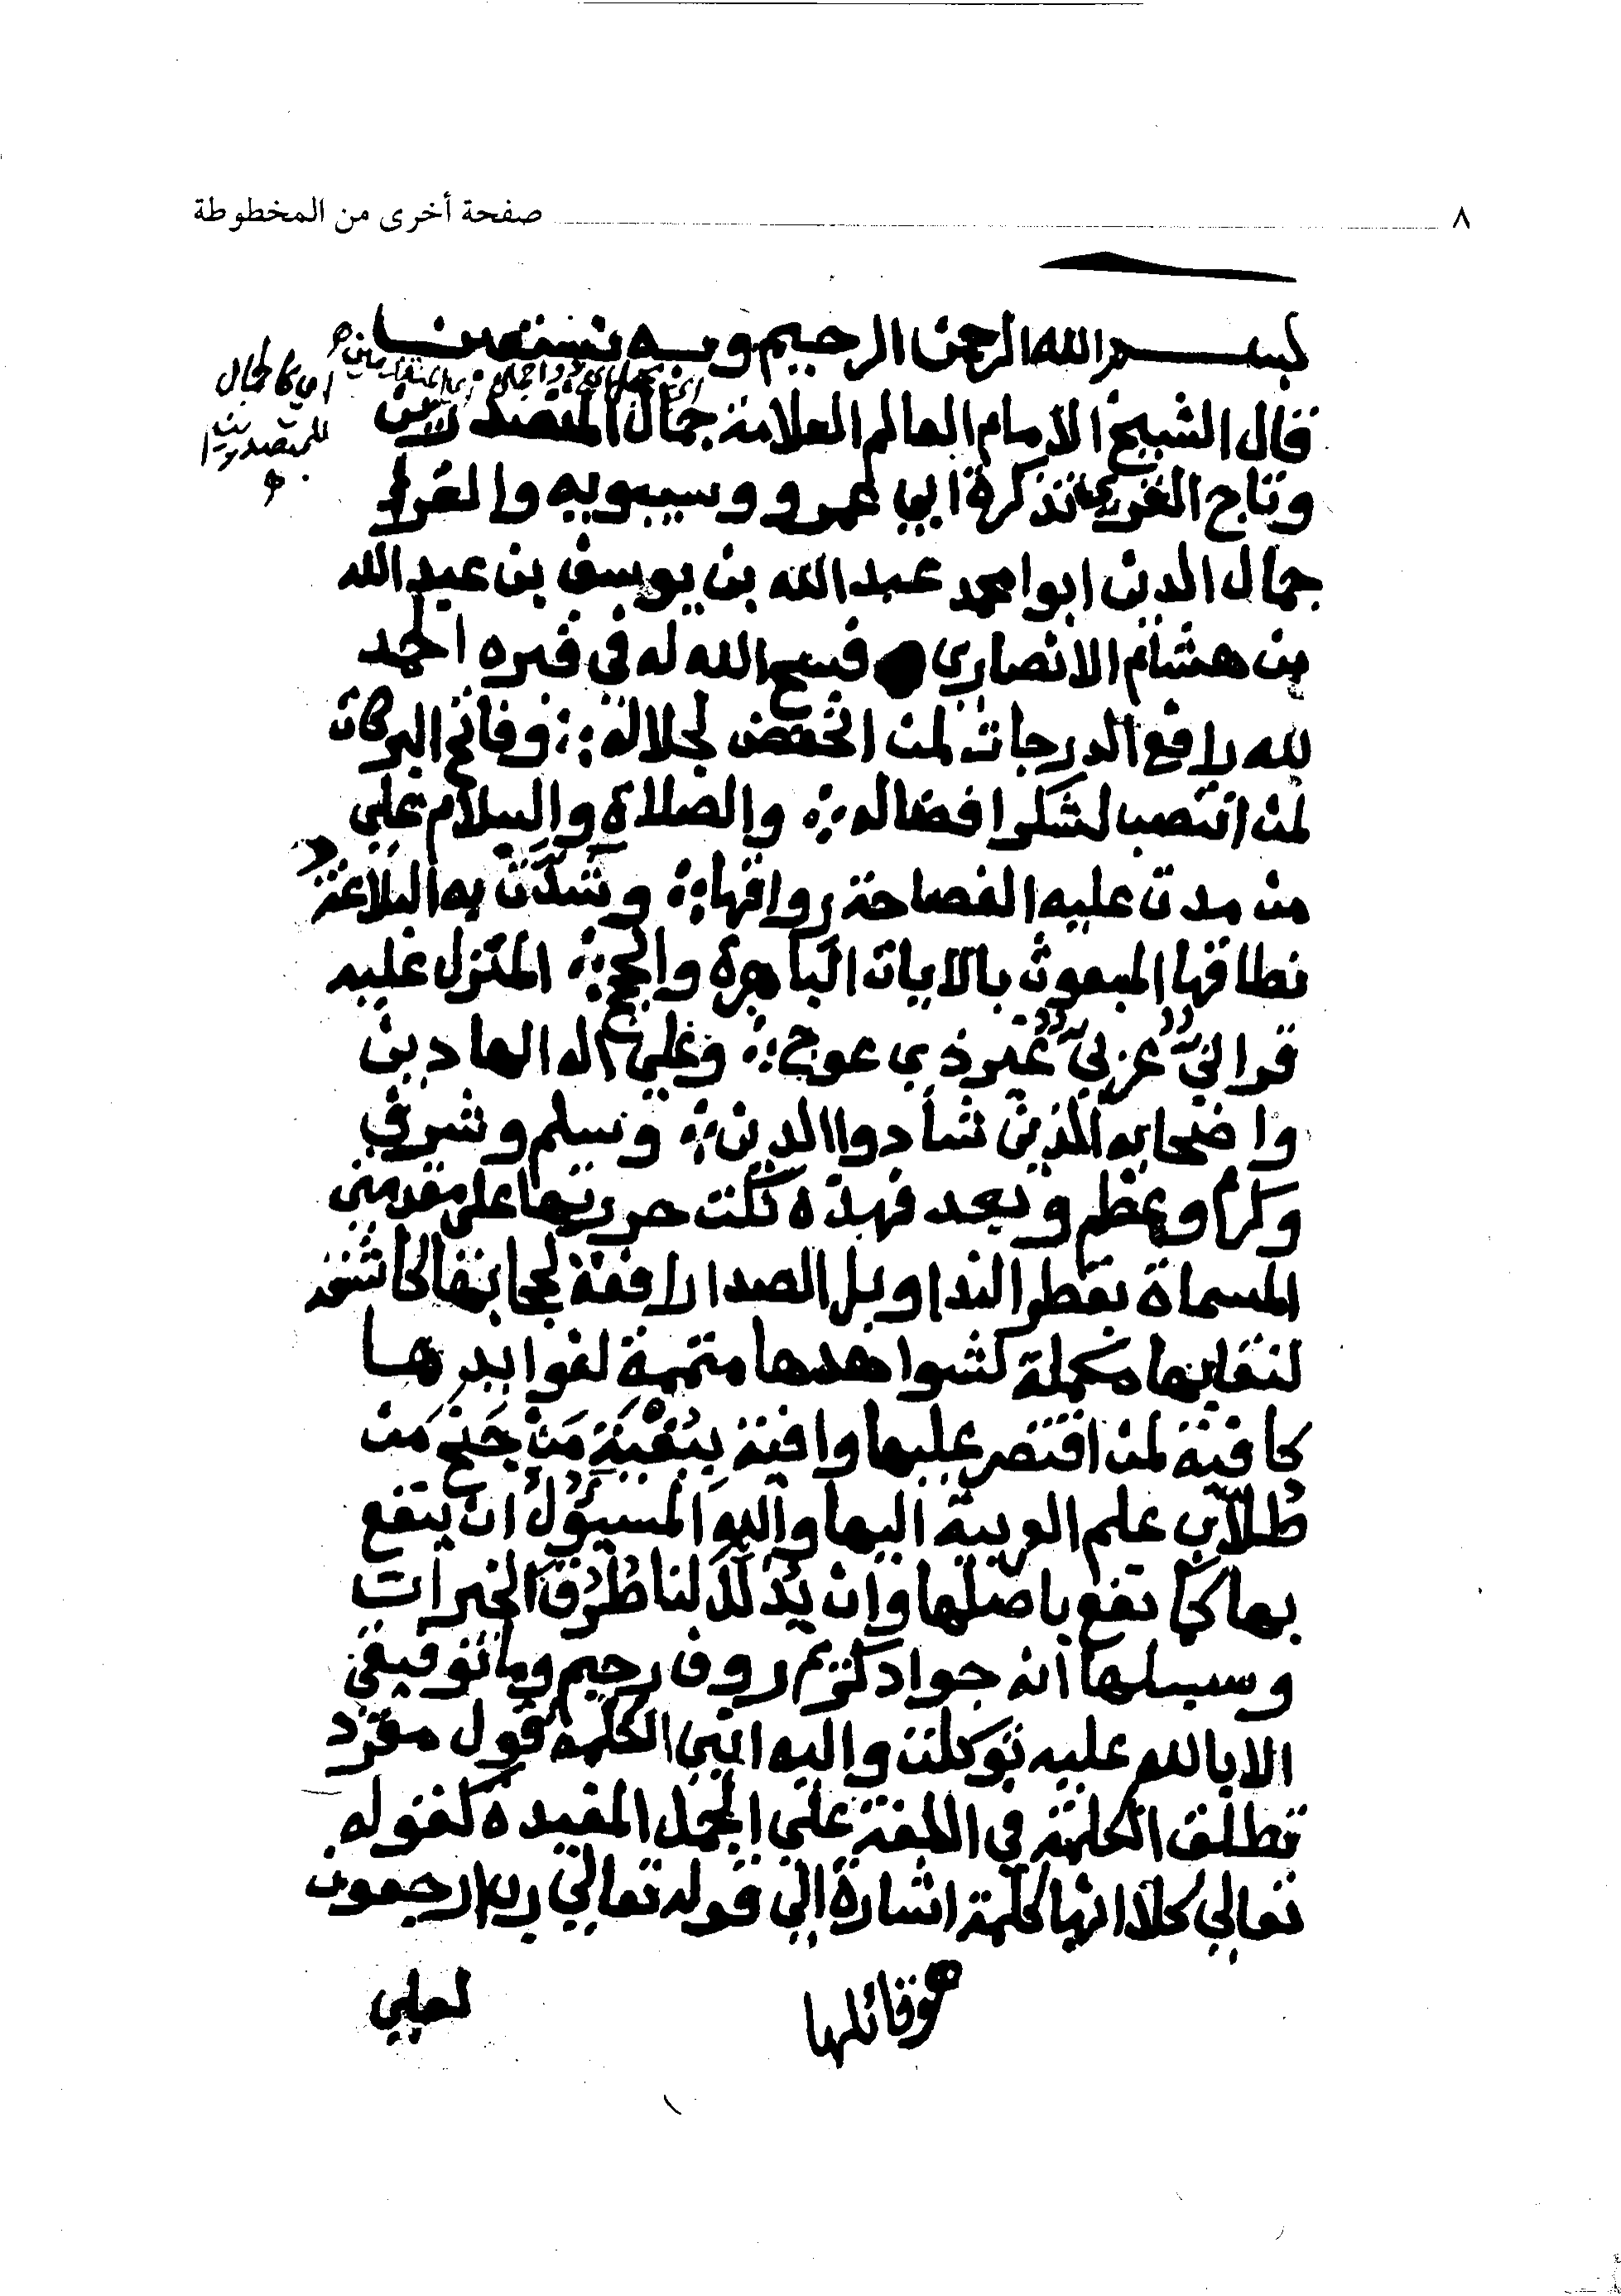 ٨ صفحة أخرى من المخطوطة
بسم الله الرحمن الرحيم وبه نستعين
اي كالجمال
للمتصدرين
قال الشيخ الامام العالم العلامة جمال المتصدرين
وتاج القرى تذكرة ابي عمرو وسيبويه والفرا
جمال الدين ابوا محمد عبد الله بن يوسف بن عبد الله
بن هشام الانصاري فسح الله له في قبره الحمد
لله رافع الدرجات لمن انخفض لجلاله وفاتح البركات
لمن انتصب لشكر افضاله والصلاة والسلام علي
من مدت عليه الفصاحة رواقها وشدَّت به البلاغة
نطاقها المبعوث بالايات الباهرة والحجج المنزل عليه
قرانٌ عربيٌ غيرُ ذي عوج وعلى اله الهادين
واصحابه الذين شادوا الدين وسلم وشرف
وكرم وعظم وبعد فهذه نكت حررتها على مقدمتي
المسماة بقطر الندا وبل الصدا رافعة لحجابها كاشفة
لنقابها مكملة لشواهدها متممة لفوايدها
كافية لمن اقتصر عليها وافية بِبُغْيَةِ مَنْ جَنَحَ مَن
طُلَّابِ علم العربية اليها واللهُ المسيؤلُ ان ينفع
بها كما نفع باصلها وان يُذَلِّلَ لنا طُرُقَ الخيرات
وسبلها انه جواد كريم روف رحيم وما توفيقي
الا بالله عليه توكلت واليه انيب الكلمة قول مفرد
تطلق الكلمة في اللغة علي الجمل المفيدة كقوله
تعالي كلا انها كلمة اشارة الي قوله تعالي رب ارجعون
هو قائلها لعلي